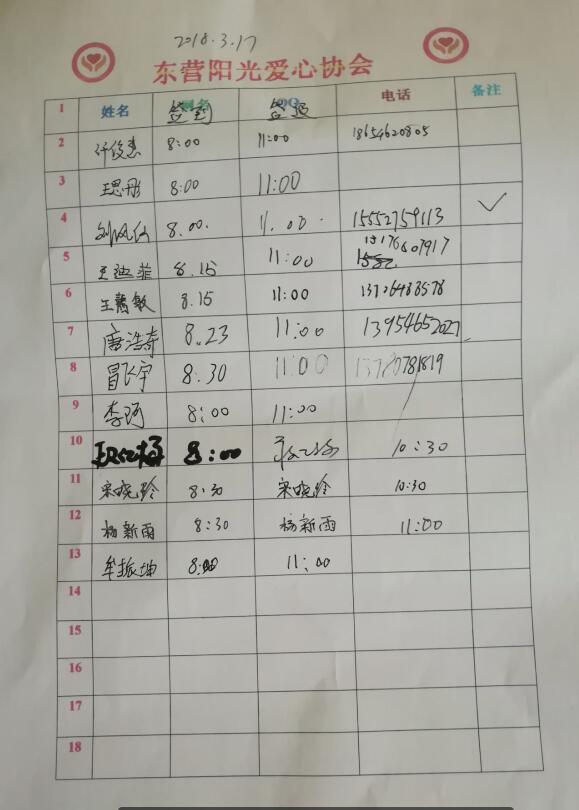 2018.3.17
东营阳光爱心协会
1 姓名 签到 签退 电话 备注
2 8:00 11:00 18654620805
3 王思彤 8:00 11:00
4 8.00. 11.00. 15552759113 ✓
5 8.15 11:00 15176607917
6 王慧敏 8.15 11:00
7 唐浩奇 8.23 11:00 13954652027
8 冒飞宇 8.30 11:00 13780781819
9 李珂 8:00 11:00
10 8:00 10:30
11 宋晓玲 8:30 宋晓玲 10:30
12 杨新雨 8:30 杨新雨 11:00
13 牟振坤 8:00 11:00
14
15
16
17
18